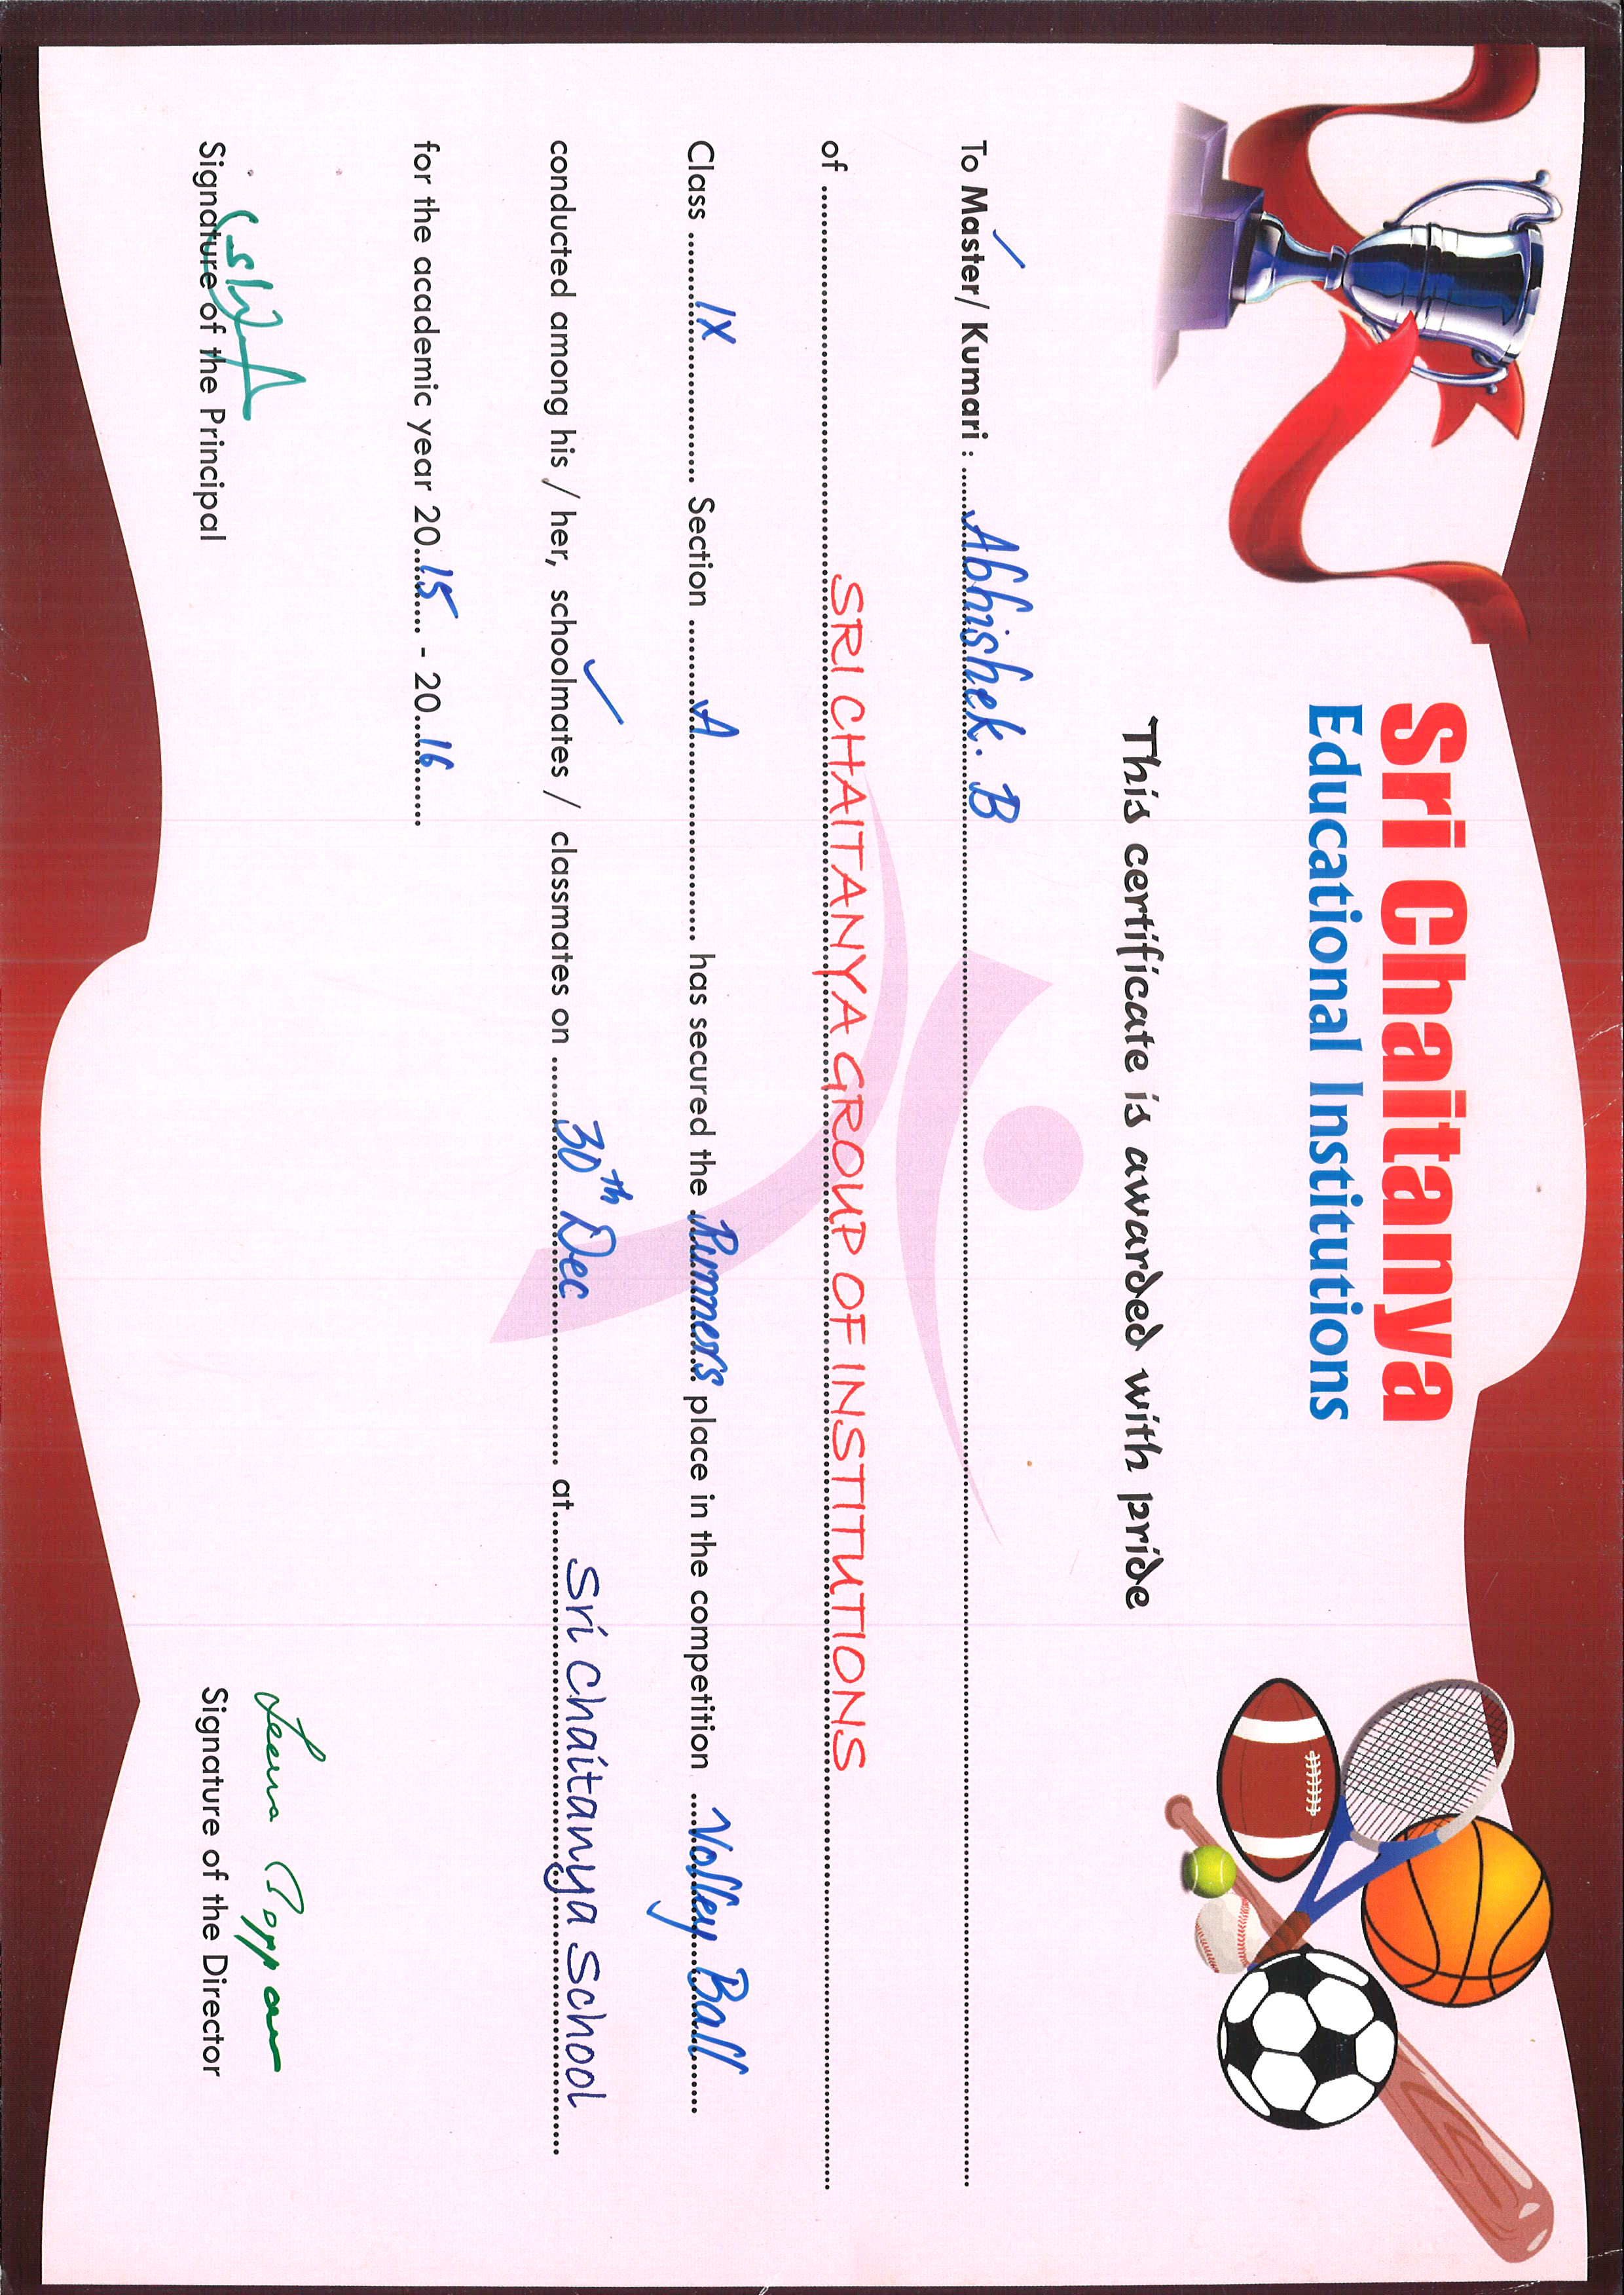 Sri Chaitanya
Educational Institutions
This certificate is awarded with pride
To Master/ Kumari : Abhishek. B
of SRI CHAITANYA GROUP OF INSTITUTIONS
Class IX Section A has secured the Runners place in the competition Volley Ball
conducted among his / her, schoolmates / classmates on 30th Dec at Sri Chaitanya School
for the academic year 2015 - 2016
Signature of the Principal
Signature of the Director